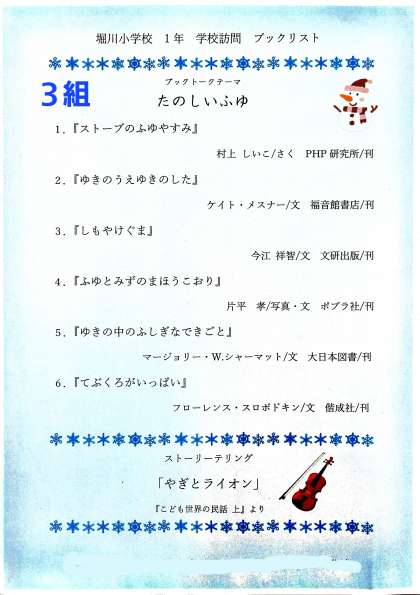 堀川小学校 1年 学校訪問 ブックリスト
3組
ブックトークテーマ
たのしいふゆ
1.『ストーブのふゆやすみ』
村上 しいこ/さく PHP研究所/刊
2.『ゆきのうえゆきのした』
ケイト・メスナー/文 福音館書店/刊
3.『しもやけぐま』
今江 祥智/文 文研出版/刊
4.『ふゆとみずのまほうこおり』
片平 孝/写真・文 ポプラ社/刊
5.『ゆきの中のふしぎなできごと』
マージョリー・W.シャーマット/文 大日本図書/刊
6.『てぶくろがいっぱい』
フローレンス・スロボドキン/文 偕成社/刊
ストーリーテリング
「やぎとライオン」
『こども世界の民話 上』より